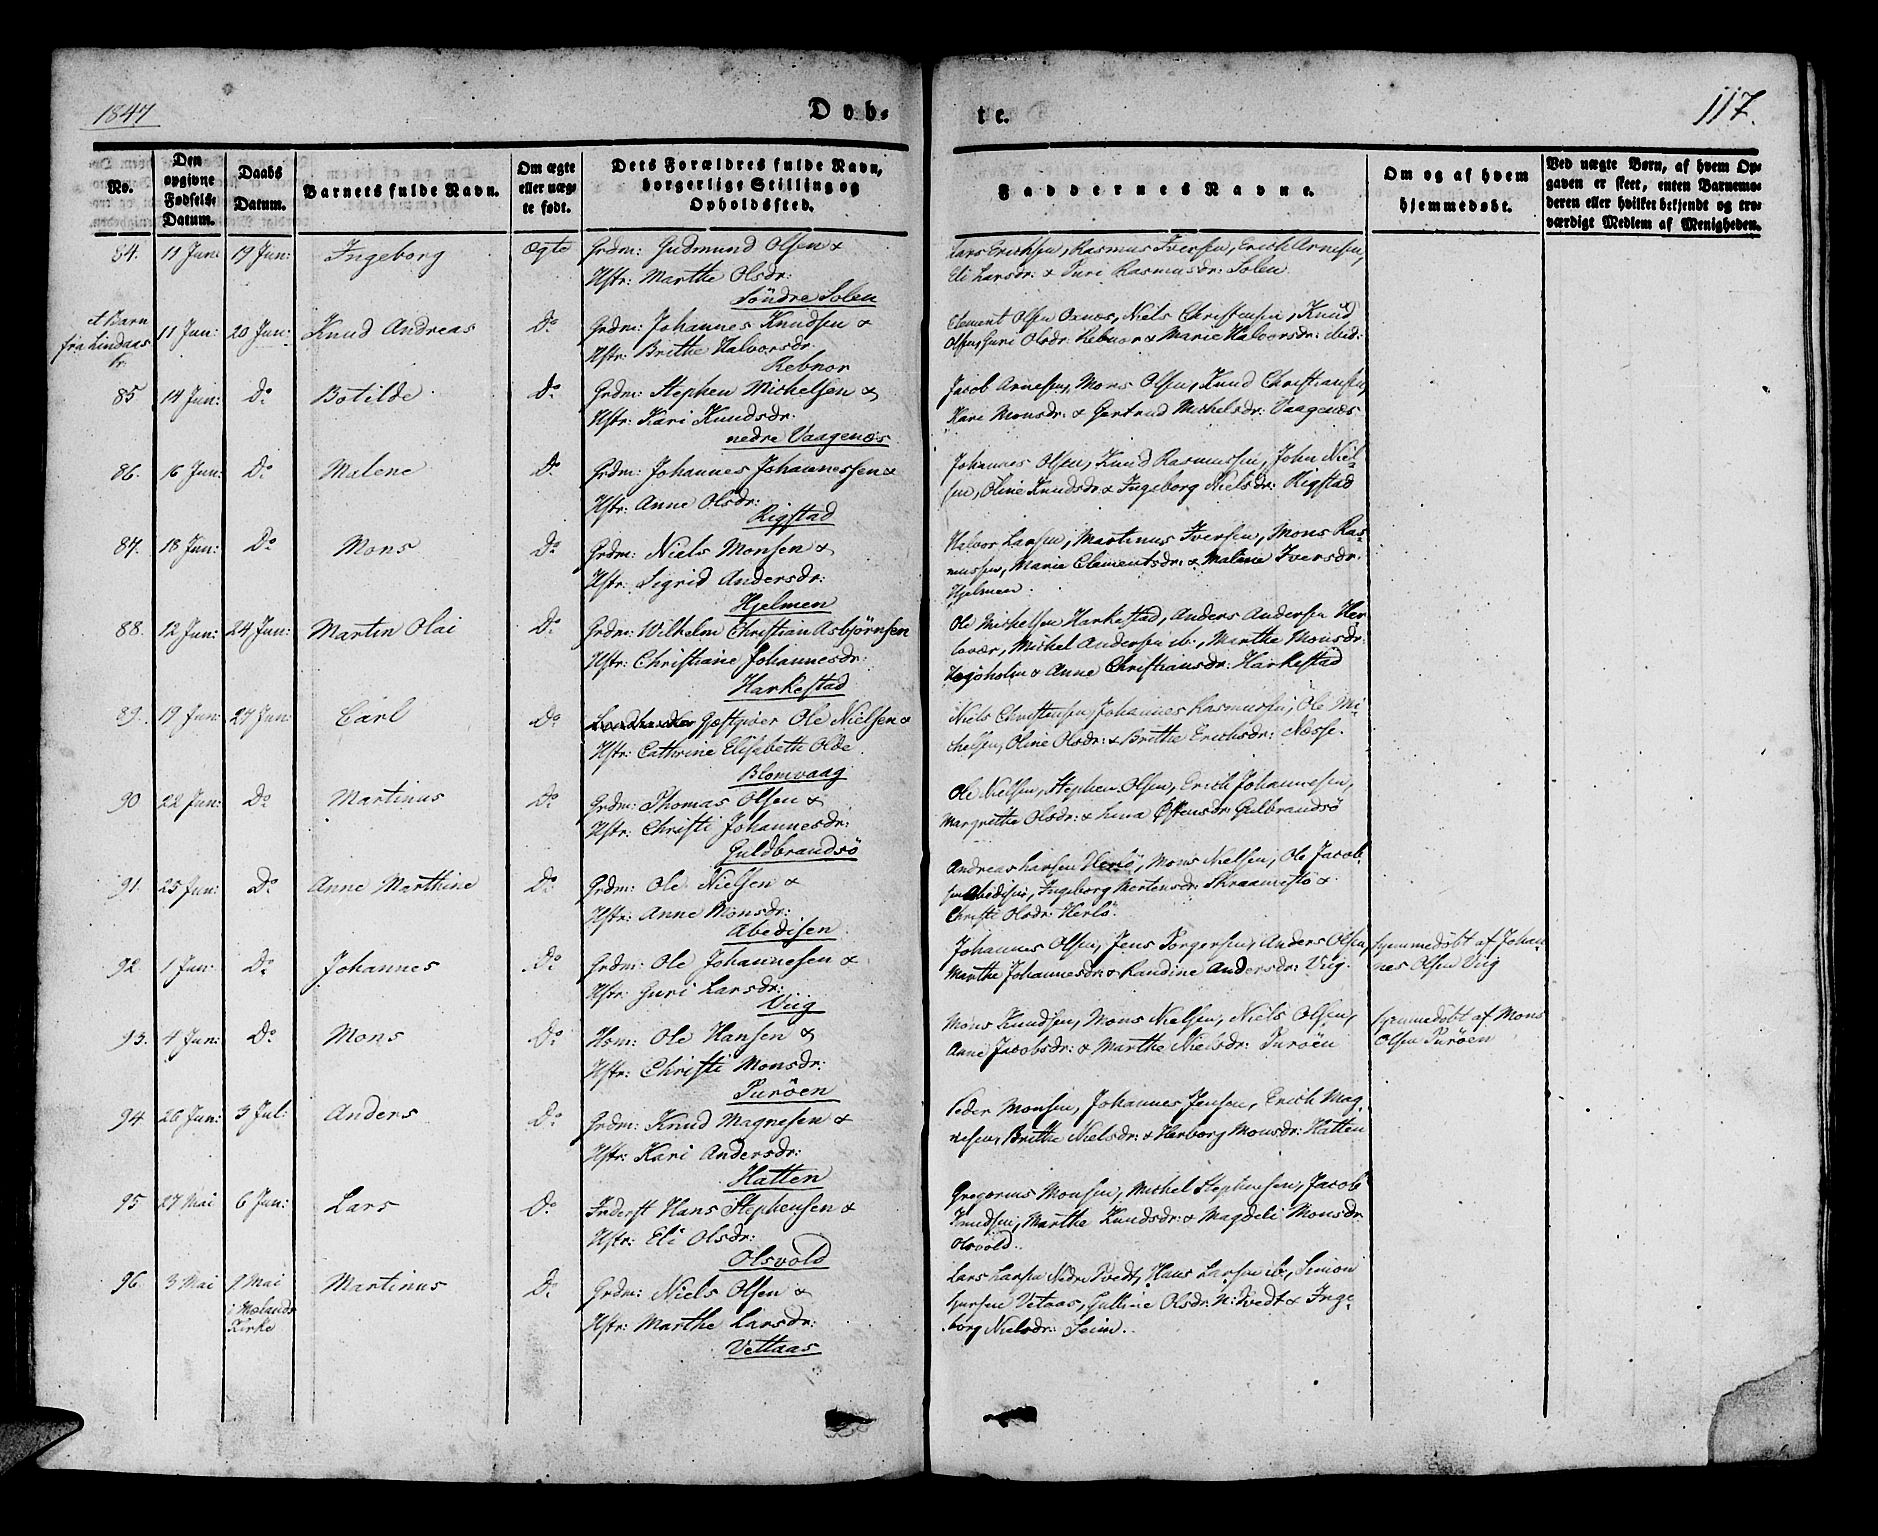 1847
Døb-
te.
117.
No.
Den
opgivne
Fødsels-
Datum.
Daabs
Datum.
Barnets fulde Navn.
Om ægte
eller uæg-
te født.
Dets Forældres fulde Navn,
borgerlige Stilling og
Opholdssted.
Faddernes Navne.
Om og af hvem
hjemmedøbt.
Ved uægte Børn, af hvem Op-
gaven er skeet, enten Barnemo-
deren eller hvilket bekjendt og tro-
værdigt Medlem af Menigheden.
84. 11 Jun: 19 Jun: Ingeborg ægte Grdm: Gudmund Olsen &
Hstr: Marthe Olsdr:
Søndre Solen
Lars Erichsen, Rasmus Iversen, Erich Arnesen,
Eli Larsdr: & Turi Rasmusdr: Solen
et Barn
fra Lindaas
11 Jun: 20 Jun: Knud Andreas Do Grdm: Johannes Knudsen &
Hstr: Brithe Halvorsdr:
Rebnor
Clement Olsen Oxnæs, Niels Christensen, Knud
Olsen, Guri Olsdr: Rebnor & Marie Halvorsdr: ibid:
85 14 Jun: Do Botilde Do Grdm: Stephen Michelsen &
Hstr: Kari Knudsdr:
nedre Vaagenæs
Jacob Arnesen, Mons Olsen, Knud Christiansen,
Kari Monsdr: & Gertrud Michelsdr: Vaagenæs
86. 16 Jun: Do Malene Do Grdm: Johannes Johannessen &
Hstr: Anne Olsdr:
Rigstad
Johannes Olsen, Knud Rasmussen, John Niel-
sen, Oline Knudsdr: & Ingeborg Nielsdr: Rigstad
87. 18 Jun: Do Mons Do Grdm: Niels Monsen &
Hstr: Sigrid Andersdr:
Hjelmen
Halvor Larsen, Martinus Iversen, Mons Ras-
mussen, Marie Clementsdr: & Malene Iversdr:
Hjelmen.
88. 12 Jun: 24 Jun: Martin Olai Do Grdm: Wilhelm Christian Asbjørnsen
Hstr: Christiane Johannesdr:
Harkestad
Ole Michelsen Harkestad, Anders Andersen Her-
løvær, Michel Andersen ib., Marthe Monsdr:
& Anne Christiansdr: Harkestad
89. 19 Jun: 27 Jun: Carl Do Gjæstgiver Ole Nielsen &
Hstr: Cathrine Elisabeth Olde
Blomvaag
Niels Christensen, Johannes Rasmussen, Ole Mi-
chelsen, Oline Olsdr: & Brithe Erichsdr: Næsse.
90 22 Jun: Do Martinus Do Grdm: Thomas Olsen &
Hstr: Christi Johannesdr:
Guldbrandsø
Ole Nielsen, Stephen Olsen, Erich Johannesen,
Margrethe Olsdr: & Lina Østensdr: Gulbrandsø
91. 25 Jun: Do Anne Marthine Do Grdm: Ole Nielsen &
Hstr: Anne Monsdr:
Abedisen
Andreas Larsen Herlø, Mons Nielsen, Ole Jacob-
sen Abedisen, Ingeborg Mortensdr: Skraamestø &
Christi Olsdr: Herlø.
92 1 Jun: Do Johannes Do Grdm: Ole Johannesen &
Hstr: Guri Larsdr:
Viig
Johannes Olsen, Jens Torgersen, Anders Olsen,
Marthe Johannesdr: & Randine Andersdr: Viig.
hjemmedøbt af Johan-
nes Olsen Viig
93. 4 Jun: Do Mons Do Hsm: Ole Hansen &
Hstr: Christi Monsdr:
Turøen
Mons Knudsen, Mons Nielsen, Niels Olsen,
Anne Jacobsdr: & Marthe Nielsdr: Turøen
hjemmedøbt af Mons
Olsen Turøen
94 26 Jun: 3 Jul: Anders Do Grdm: Knud Magnesen &
Hstr: Kari Andersdr:
Hatten
Peder Monsen, Johannes Jensen, Erich Mag-
nesen, Brithe Nielsdr: & Herborg Monsdr: Hatten
95 27 Mai 6 Jun: Lars Do Inderst Hans Stephensen &
Hstr: Eli Olsdr:
Olsvold
Gregorius Monsen, Michel Stephensen, Jacob
Knudsen, Marthe Knudsdr: & Magdeli Monsdr
Olsvold.
96. 3 Mai 9 Mai
i Mælands
Kirke
Martinus Do Grdm: Niels Olsen &
Hstr: Marthe Larsdr:
Vettaas
Lars Larsen Nedre Tvedt, Hans Larsen ib, Simon
Vetaas, Olsdr: N: Tvedt & Inge-
borg Nielsdr: Seim.